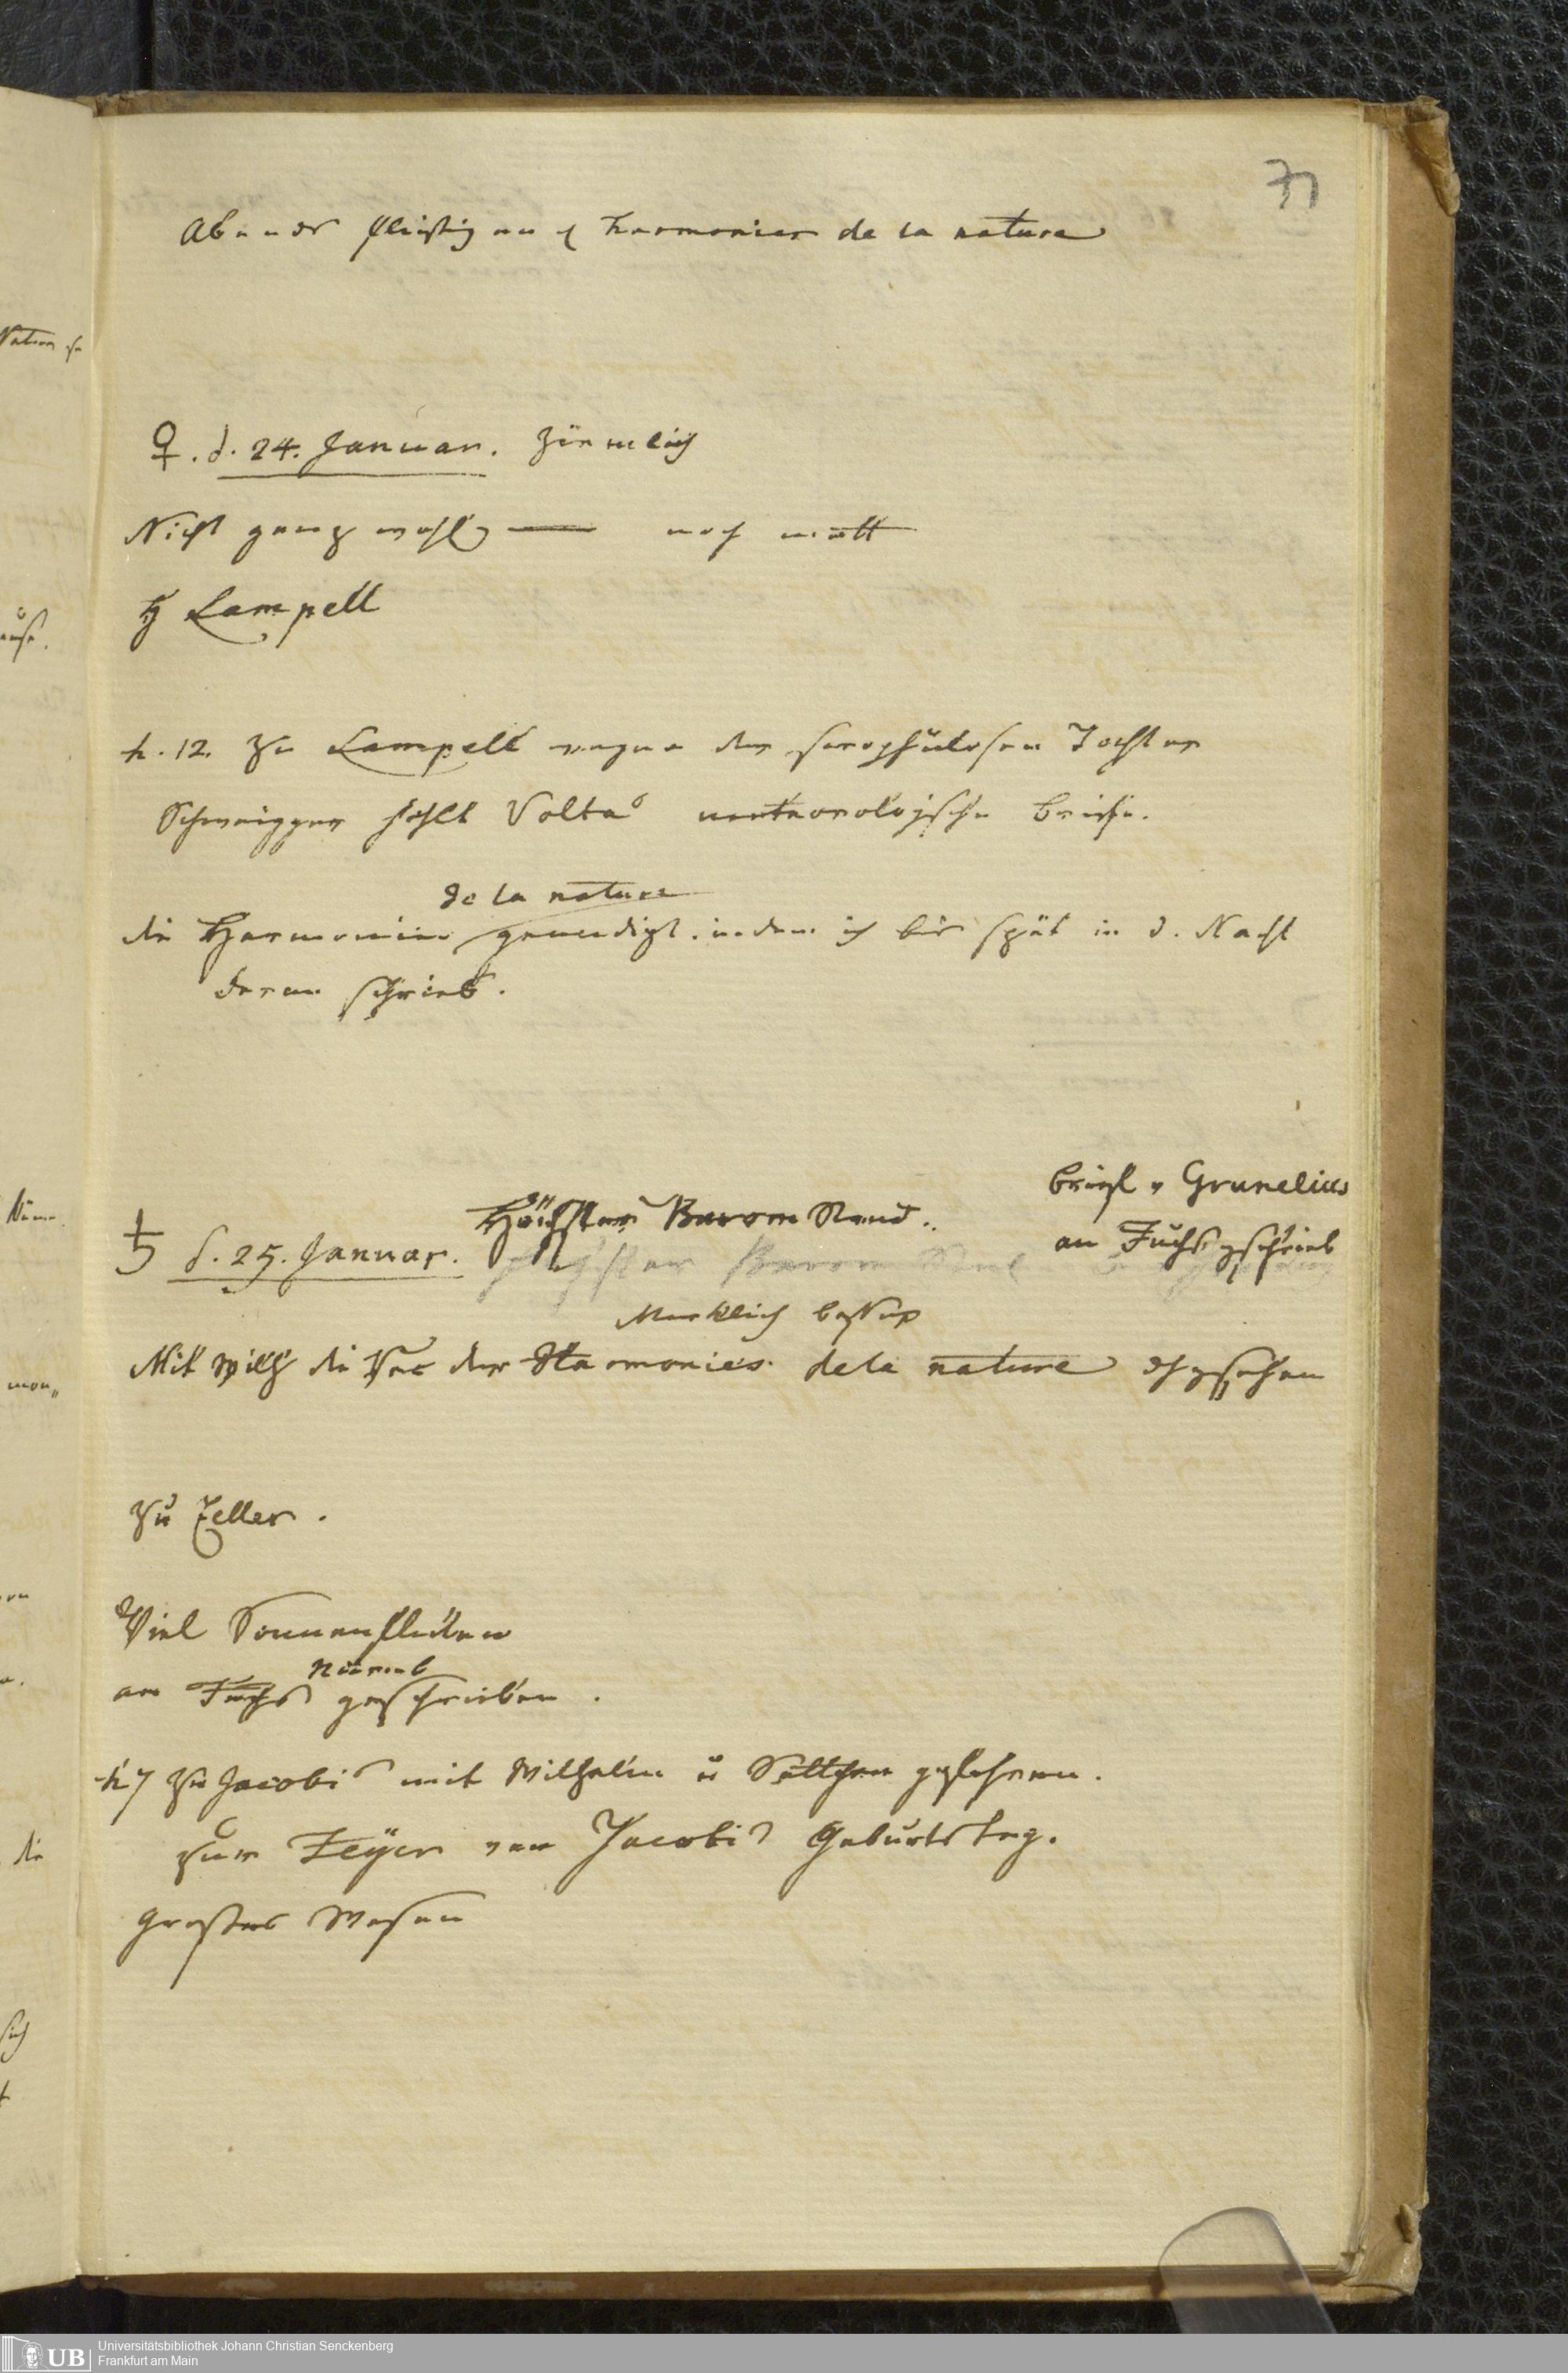 71
Abends fleißig an d harmonies de la nature
♀. d. 24. Januar. ziemlich
Nicht ganz wohl — noch matt
Lampell
h. 12. zu Lampell wegen der scrophulosen Tochter
Schweigger hohlt Volta's meteorologische Briefe.
de la nature
die Harmonies geendigt. indem ich bis spät in d. Nacht
daran schrieb.
Brief v Grunelius
Höchster Barom Stand.
an Fuchs geschrieb
♄ d. 25. Januar.
höchster Barom Stand
Merklich besser
Mit Wilh die der Harmonies de la nature
zu Zeller.
Viel Sonnenflecken
Nürnb
an Fuchs geschrieben.
h 7 zu Jacobis mit Wilhelm u Settchen gefahren.
zur Feyer von Jacobis Geburtstag.
großes Wesen
Universitätsbibliothek Johann Christian Senckenberg
Frankfurt am Main
UB